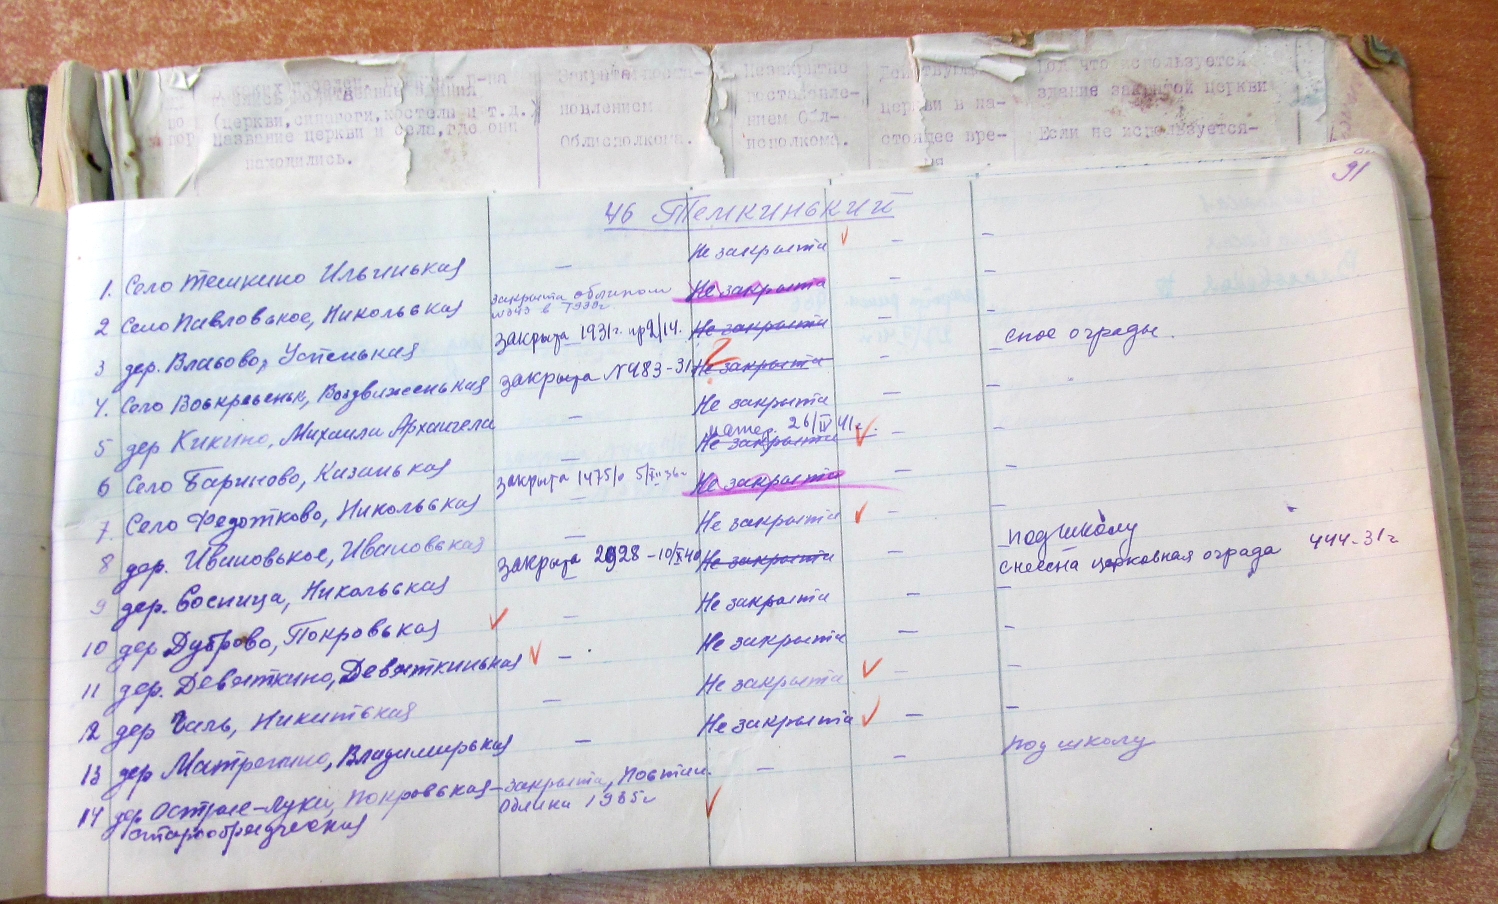 в каких
(церкви, синагоги, костелы и т.д.)
название церкви и села, где они
находились.
Закрыте
новлением
Облисполкома.
Незакрыто
постановле-
нием Обл-
исполкома.
церкви в на-
стоящее вре-
что используется
здание закрытой церкви
Если не используется-
91
46 Темкинский
1. Село Темкино Ильинская – Не закрыта –  –
2 Село Павловское, Никольская закрыта обликом
№343 в 1930г Не закрыта –  –
3 дер. Власово, Успенская закрыта 1931г. пр2/14. Не закрыта –  –
4. Село Воскресенск, Воздвиженская закрыта №483-31 Не закрыта – снос ограды.
?
5 дер Кикино, Михаила Архангела – Не закрыта –  –
6 Село Бариново, Казанская – 26/IV 41г. Не закрыта –  –
7. Село Федотково, Никольская закрыта 1475/ 5/ 36г Не закрыта –  –
8 дер. Ивановское, Ивановская – Не закрыта – под школу
9 дер. Сосница, Никольская закрыта 2928-10/X40 Не закрыта – снесена церковная ограда 444-31г
10 дер Дуброво, Покровская – Не закрыта –  –
11 дер. Девяткино, Девяткинская – Не закрыта –  –
12 дер Чаль, Никитская – Не закрыта –
13 дер Матренино, Владимирская – Не закрыта –  –
14 дер Острые-Луки, Покровская – закрыта, Постан. –  – под школу
старообрядческая Облика 1935г